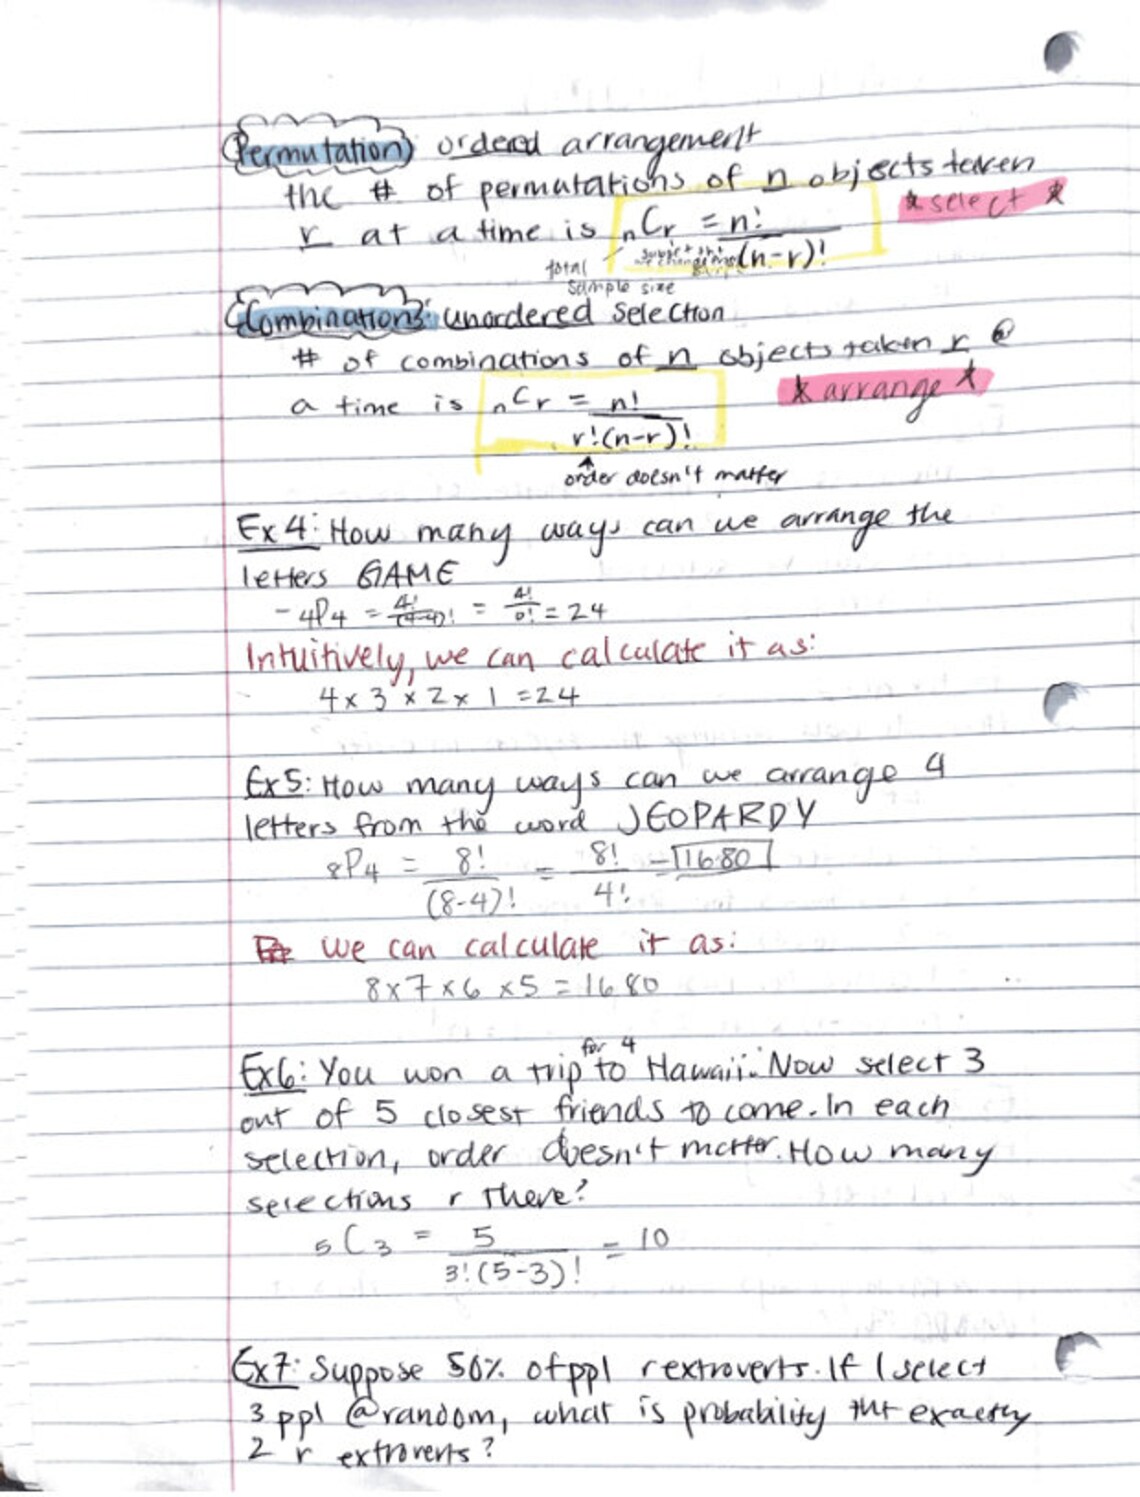 Permutation ordered arrangement
the # of permutations of n objects taken
*select *
r at a time is nCr = n! / (n-r)!
total
sample size
Combinations: unordered selection
# of combinations of n objects taken r @
* arrange *
a time is nCr = n! / r!(n-r)!
order doesn't matter
Ex 4: How many ways can we arrange the
letters GAME
- 4P4 = 4! / (4-4)! = 4! / 0! = 24
Intuitively, we can calculate it as:
4 x 3 x 2 x 1 = 24
Ex5: How many ways can we arrange 4
letters from the word JEOPARDY
8P4 = 8! / (8-4)! = 8! / 4! = 1680
we can calculate it as:
8x7x6x5 = 1680
for 4
Ex6: You won a trip to Hawaii. Now select 3
out of 5 closest friends to come. In each
selection, order doesn't matter. How many
selections r there?
5C3 = 5 / 3!(5-3)! = 10
Ex7: Suppose 50% of ppl r extroverts. If I select
3 ppl @random, what is probability tht exactly
2 r extroverts?